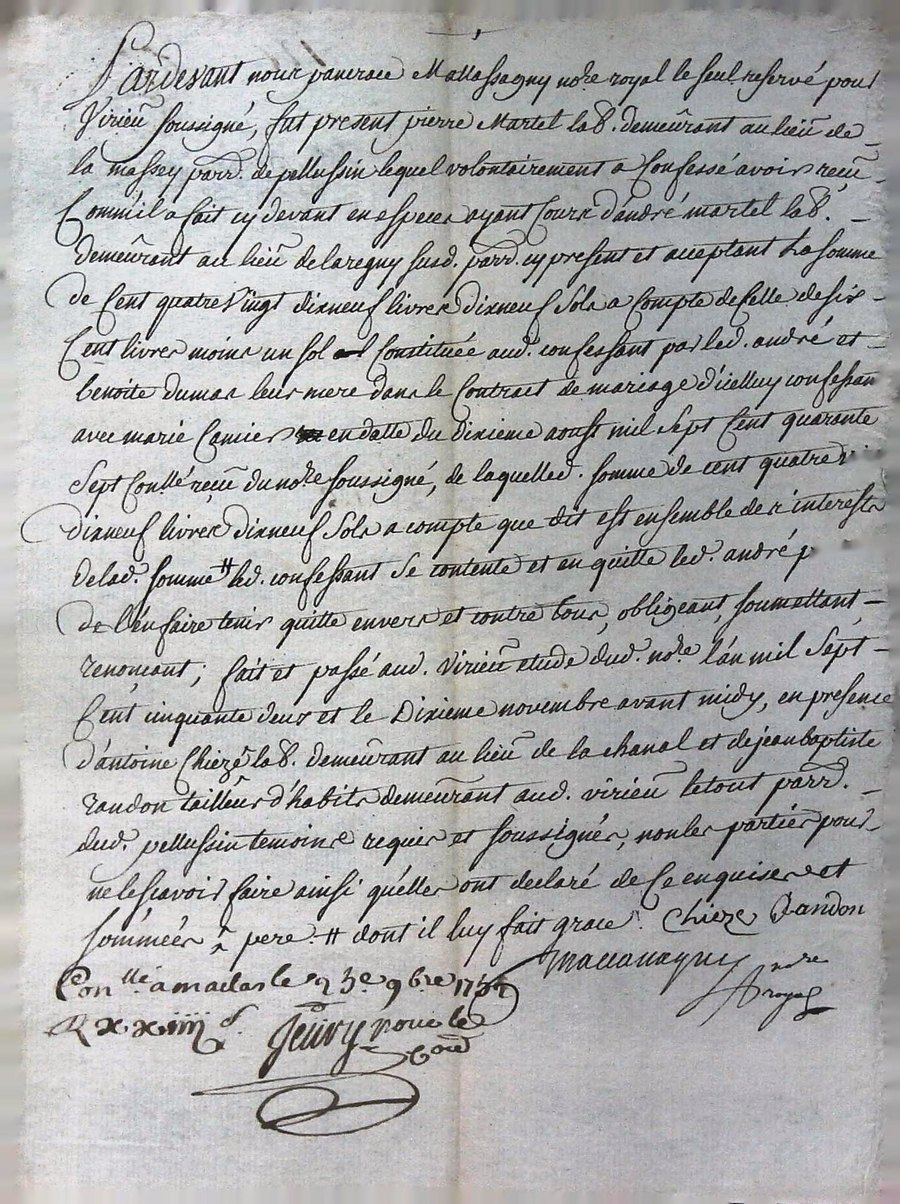 Pardevant nous pancrace Mattassagny nore royal le seul reservé pour
Virieu soussigné, fut present pierre Martel lab. demeurant au lieu de
la massey parr. de pellussin lequel volontairement a Confessé avoir reçu
Comm'il a fait cy devant en especes ayant Cours d'andré martel lab.
demeurant au lieu de laregny susd. parr. cy present et acceptant La somme
de Cent quatre Vingt dixneuf livres dixneuf Sols a Compte de Celle de six
Cent livres moins un sol Constituée aud. confessant par led. andré et
benoite dumas leur mere dans le Contrat de mariage d'icelluy confessan
avec marie Camier en datte du dixieme aoust mil Sept Cent quarante
Sept Conllé reçu du nore soussigné, de laquelled. somme de cent quatre
dixneuf livres dixneuf Sols a compte que dit est ensemble des interests
delad. somme # led. confessant Se contente et en quitte led. andré p
de l'en faire tenir quitte envers et contre tous, obligeant, soumettant,
renoncant; fait et passé aud. Virieu etude dud. nore l'an mil Sept
Cent cinquante deux et le Dixieme novembre avant midy, en presence
d'antoine Chieze lab. demeurant au lieu de la chanal et de jean baptiste
randon tailleur d'habits demeurant aud. virieu le tout parr.
dud. pellussin temoins requis et soussignés, non les parties pour
ne le scavoir faire ainsi qu'elles ont declaré de Ce enquises et
sommées ^ pere. # dont il luy fait grace. Chieze Randon
nore
royal
Conllé a malas le 23e 9bre 1752
R x x iiii s.